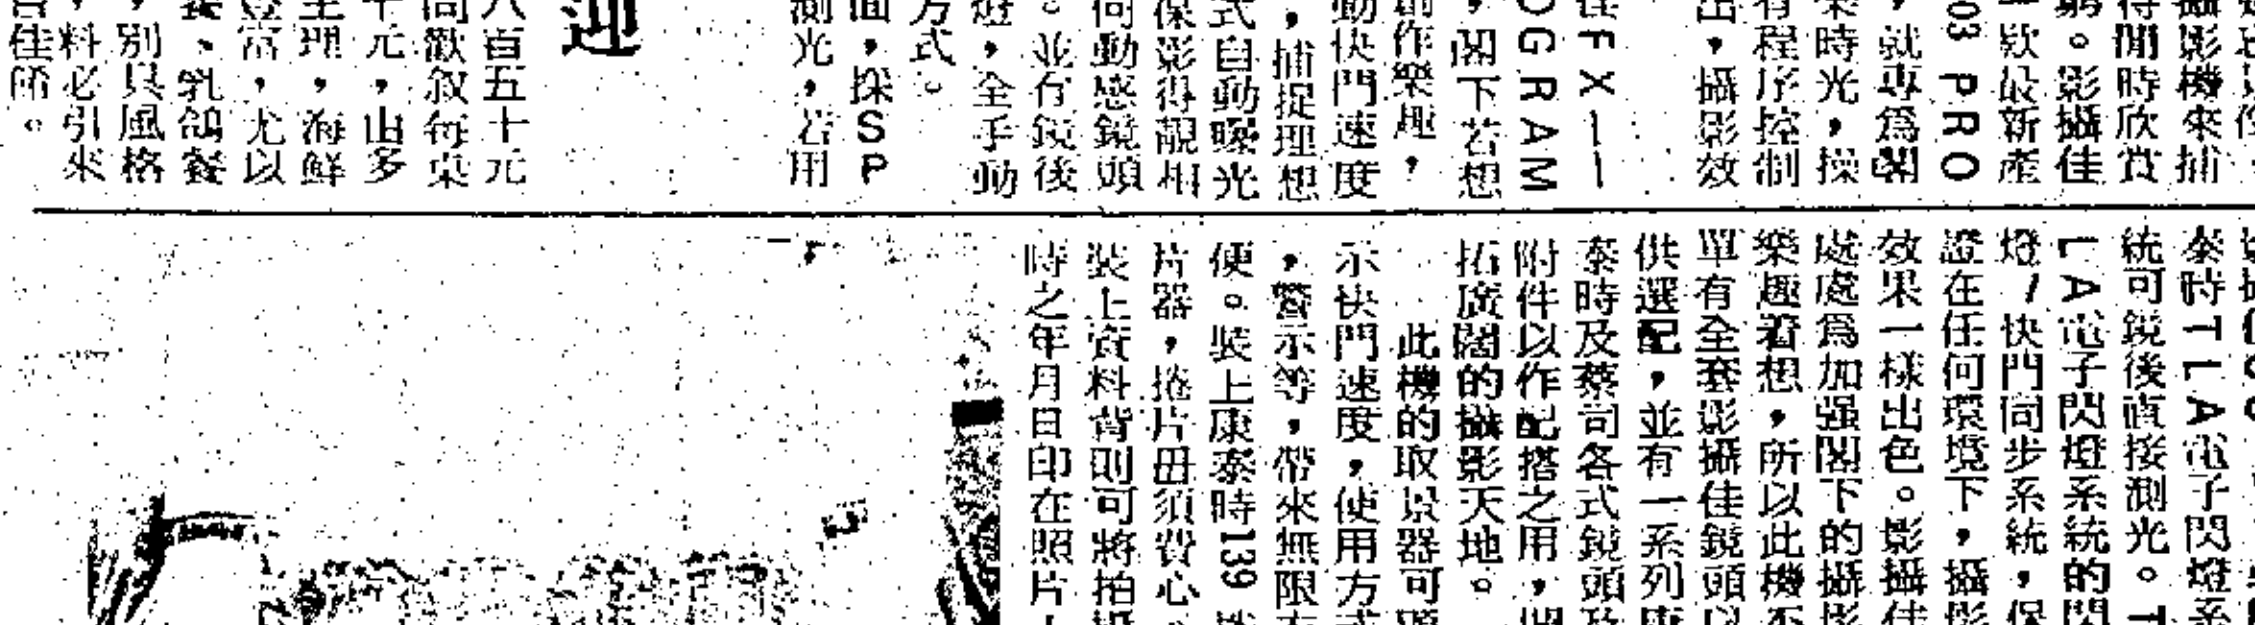 攝影機來捕
得閒時欣賞
窮。影攝佳
款最新產
03 PRO
，就專爲閣
樂時光，操
有程序控制
出，攝影效
FX——
OGRAM
，閣下若想
創作樂趣，
動快門速度
，捕捉理想
式自動曝光
深影得靚相
何動感鏡頭
。並有鏡後
燈，全手動
方式。
面，採SP
測光，若用
迎
八百五十元
同歡叙每桌
千元，山多
生理，海鮮
豐富，尤以
、乳鴿餐
，別具風格
，料必引來
佳所。
泰時TLA電子閃燈系
統可鏡後直接測光。T
LA電子閃燈系統的閃
燈、快門同步系統，保
證在任何環境下，攝影
效果一樣出色。影攝佳
處處爲加强閣下的攝影
樂趣着想，所以此機不
單有全套影攝佳鏡頭以
供選配，並有一系列康
泰時及蔡司各式鏡頭及
附件以作配搭之用，
拓廣闊的攝影天地。
此機的取景器可顯
示快門速度，使用方式
，警示等，帶來無限方
便。裝上康泰時139
片器，捲片毋須費心。
裝上資料背則可將拍攝
時之年月日印在照片上